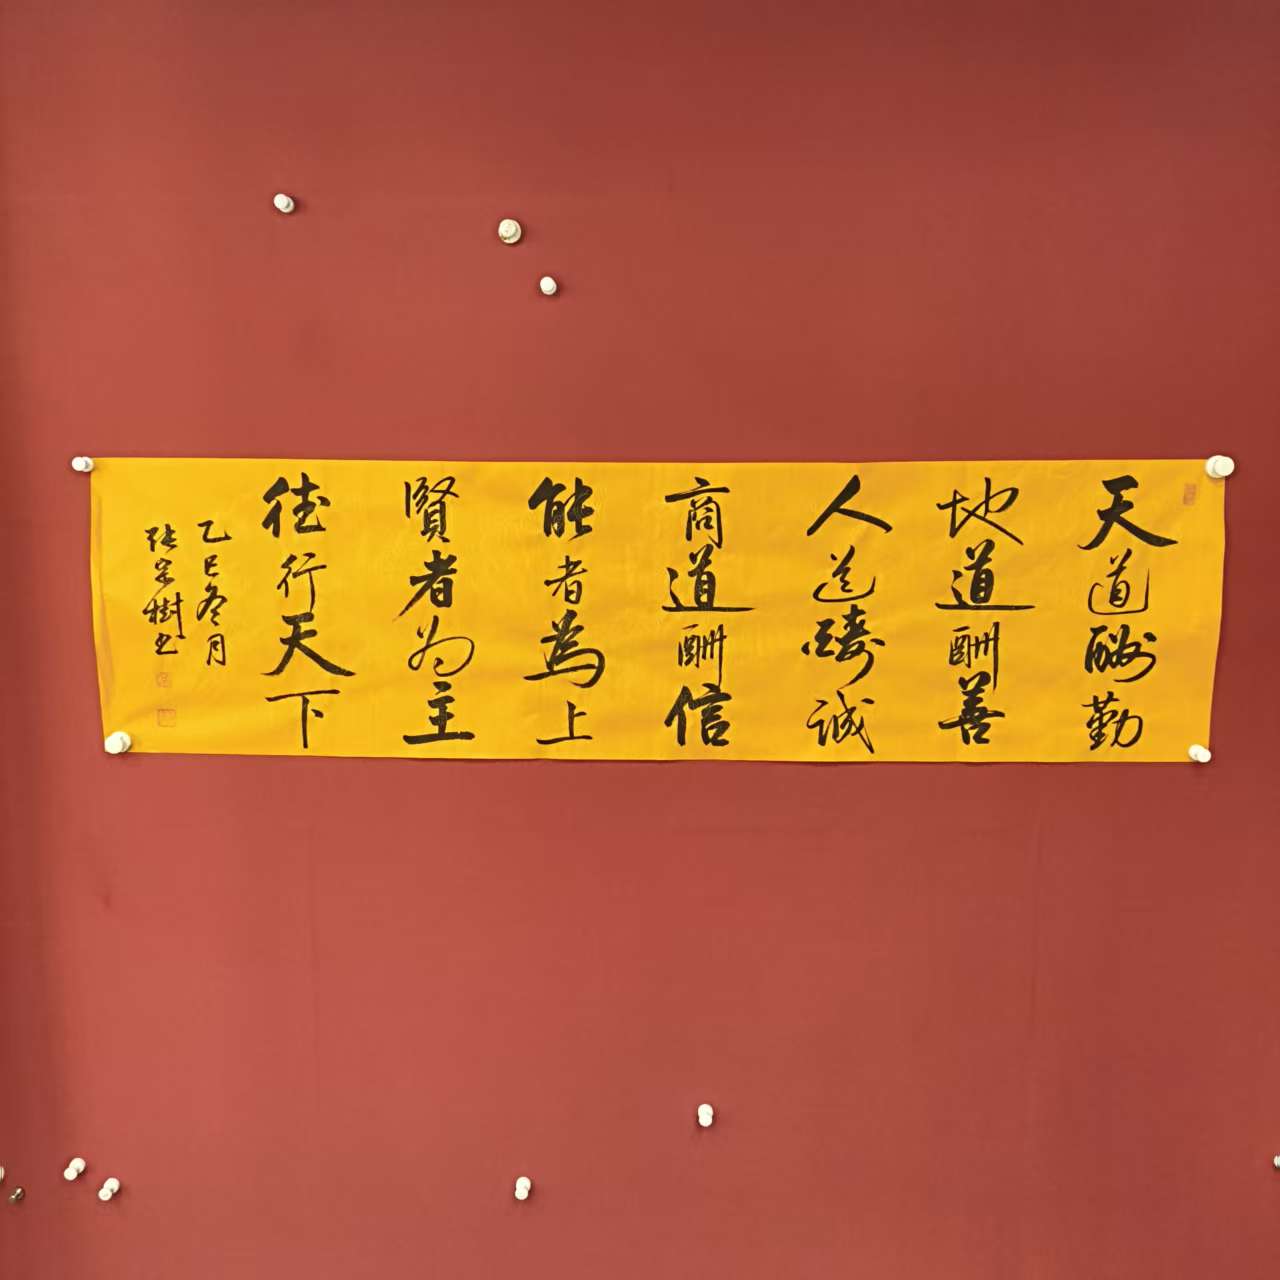 天道酬勤
地道酬善
人道酬誠
商道酬信
能者為上
賢者为主
德行天下
乙巳冬月
张宗樹书